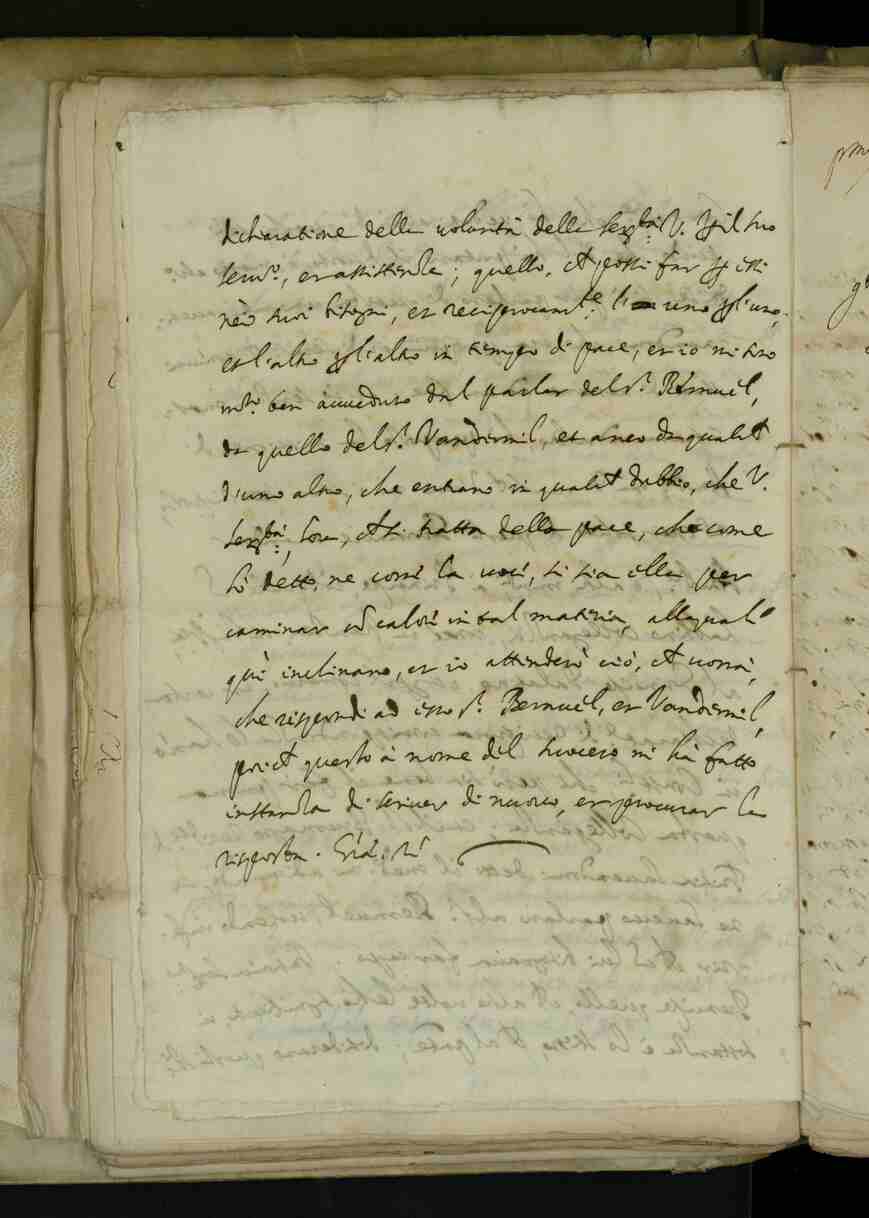 dichiaratione della volontà della Ser.tà V. p il suo
seru.o, et assistenza; quello, ch possi far p essi
nei suoi bisogni, et reciprocam.te l'uno p l'uno,
et l'altro p l'altro in tempo di pace, et io mi sono
m.to ben aueduto dal parlar del S.r Bernuel,
da quello del S.r Vandermil, et anco da qualch
d'uno altro, che entrano in qualch dubbio, che V.
Ser.tà, hora, ch si tratta della pace, che come
hò detto, ne corre la voce, si sia ella per
caminar con calore in tal materia, alla quale
quì inclinano, et io attenderò ciò, ch vorrà,
che rispondi ad esso S.r Bernuel, et Vandermil,
poich questo à nome del suocero mi hà fatto
instanza di scriuer di nuouo, et procurar la
risposta. Gra. etc.